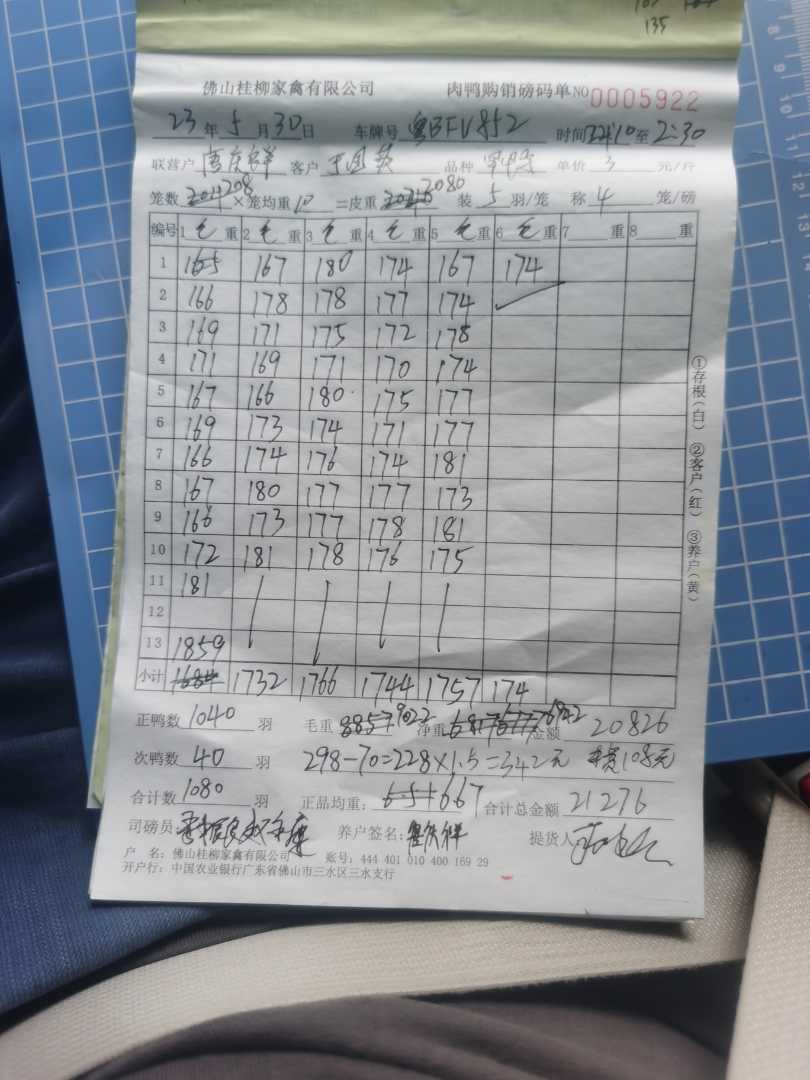 135
佛山桂柳家禽有限公司 肉鸭购销磅码单 NO 0005922
23 年 5 月 30 日 车牌号 粤BFV852 时间 至 2:30
联营户 客户 品种 单价 3 元/斤
笼数 208 ×笼均重 10 =皮重 2080 装 5 羽/笼 称 4 笼/磅
编号 1 毛 重 2 毛 重 3 毛 重 4 毛 重 5 毛 重 6 毛 重 7 重 8 重
1 165 167 180 174 167 174
2 166 178 178 177 174
3 169 171 175 172 178
4 171 169 171 170 174
5 167 166 180 175 177
6 169 173 174 171 177
7 166 174 176 174 181
8 167 180 177 177 173
9 166 173 177 178 181
10 172 181 178 176 175
11 181
12
13 1859
小计 1684 1732 1766 1744 1757 174
正鸭数 1040 羽 毛重 8857 9022 净重 6942 金额 20826
次鸭数 40 羽 298-70=228×1.5=342元 108元
合计数 1080 羽 正品均重: 6.51 667 合计总金额 21276
司磅员: 养户签名: 提货人
户 名: 佛山桂柳家禽有限公司 账号: 444 401 010 400 169 29
开户行: 中国农业银行广东省佛山市三水区三水支行
①存根(白) ②客户(红) ③养户(黄)